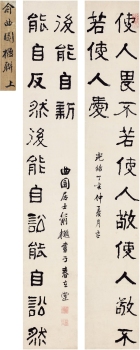 俞曲園楹聯 上
使人畏不若使人敬使人敬不
若使人愛
光緒丁亥仲夏月吉
能自反然後能自訟能自訟然
後能自新
曲園居士俞樾書于春在堂